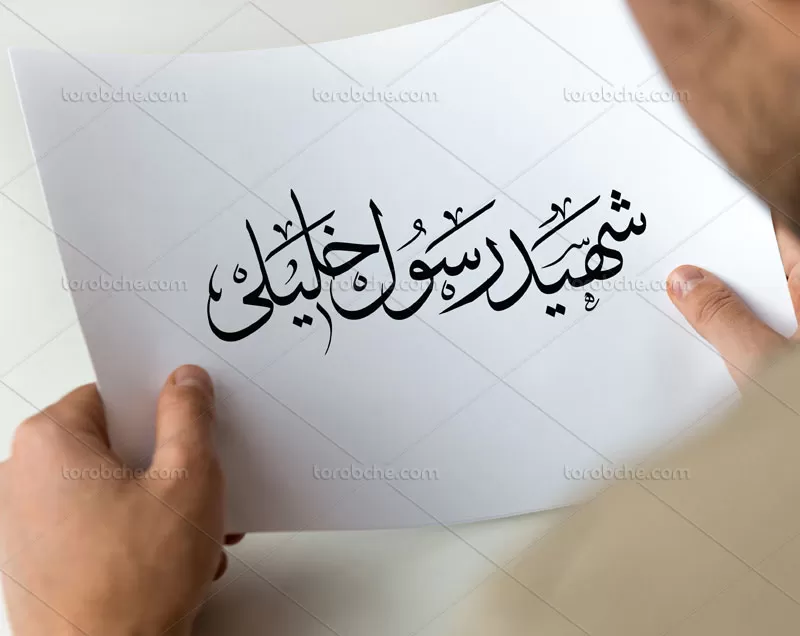 torobche.com torobche.com torobche.com
شهید رسول خلیلی
torobche.com torobche.com torobche.com
torobche.com torobche.com torobche.com